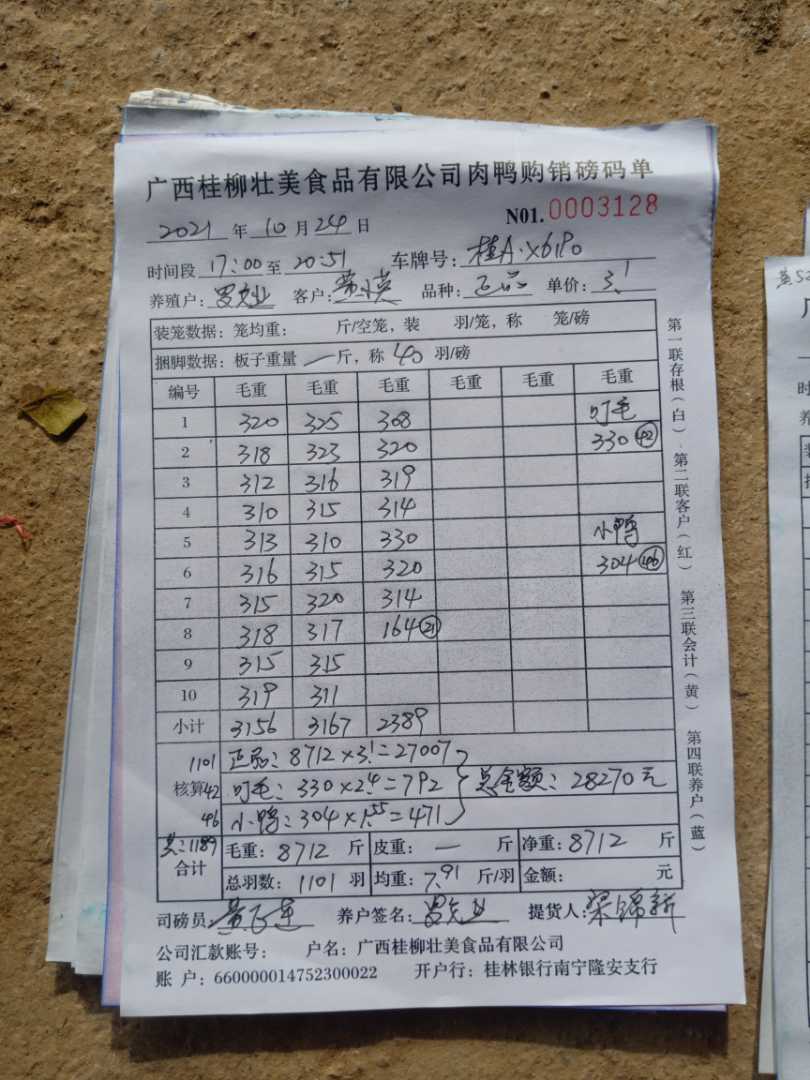 广西桂柳壮美食品有限公司肉鸭购销磅码单
2021 年 10 月 24 日 N01. 0003128
时间段 17:00 至 20:51 车牌号: 桂A·X6180
养殖户: 客户: 黄小英 品种: 正品 单价: 3.1
装笼数据: 笼均重: 斤/空笼, 装 羽/笼, 称 笼/磅
捆脚数据: 板子重量 一 斤, 称 40 羽/磅
编号 毛重 毛重 毛重 毛重 毛重 毛重
1 320 325 308 叮毛
2 318 323 320 330 42
3 312 316 319
4 310 315 314
5 313 310 330 小鸭
6 316 315 320 304 46
7 315 320 314
8 318 317 164 21
9 315 315
10 319 311
小计 3156 3167 2389
1101 正品: 8712×3.1=27007
核算 42 叮毛: 330×2.4=792 总金额: 28270元
46 小鸭: 304×1.55=471
共: 1189
合计 毛重: 8712 斤 皮重: 一 斤 净重: 8712 斤
总羽数: 1101 羽 均重: 7.91 斤/羽 金额: 元
司磅员: 养户签名: 提货人: 梁锦新
公司汇款账号: 户名: 广西桂柳壮美食品有限公司
账 户: 660000014752300022 开户行: 桂林银行南宁隆安支行
第一联存根(白) 第二联客户(红) 第三联会计(黄) 第四联养户(蓝)